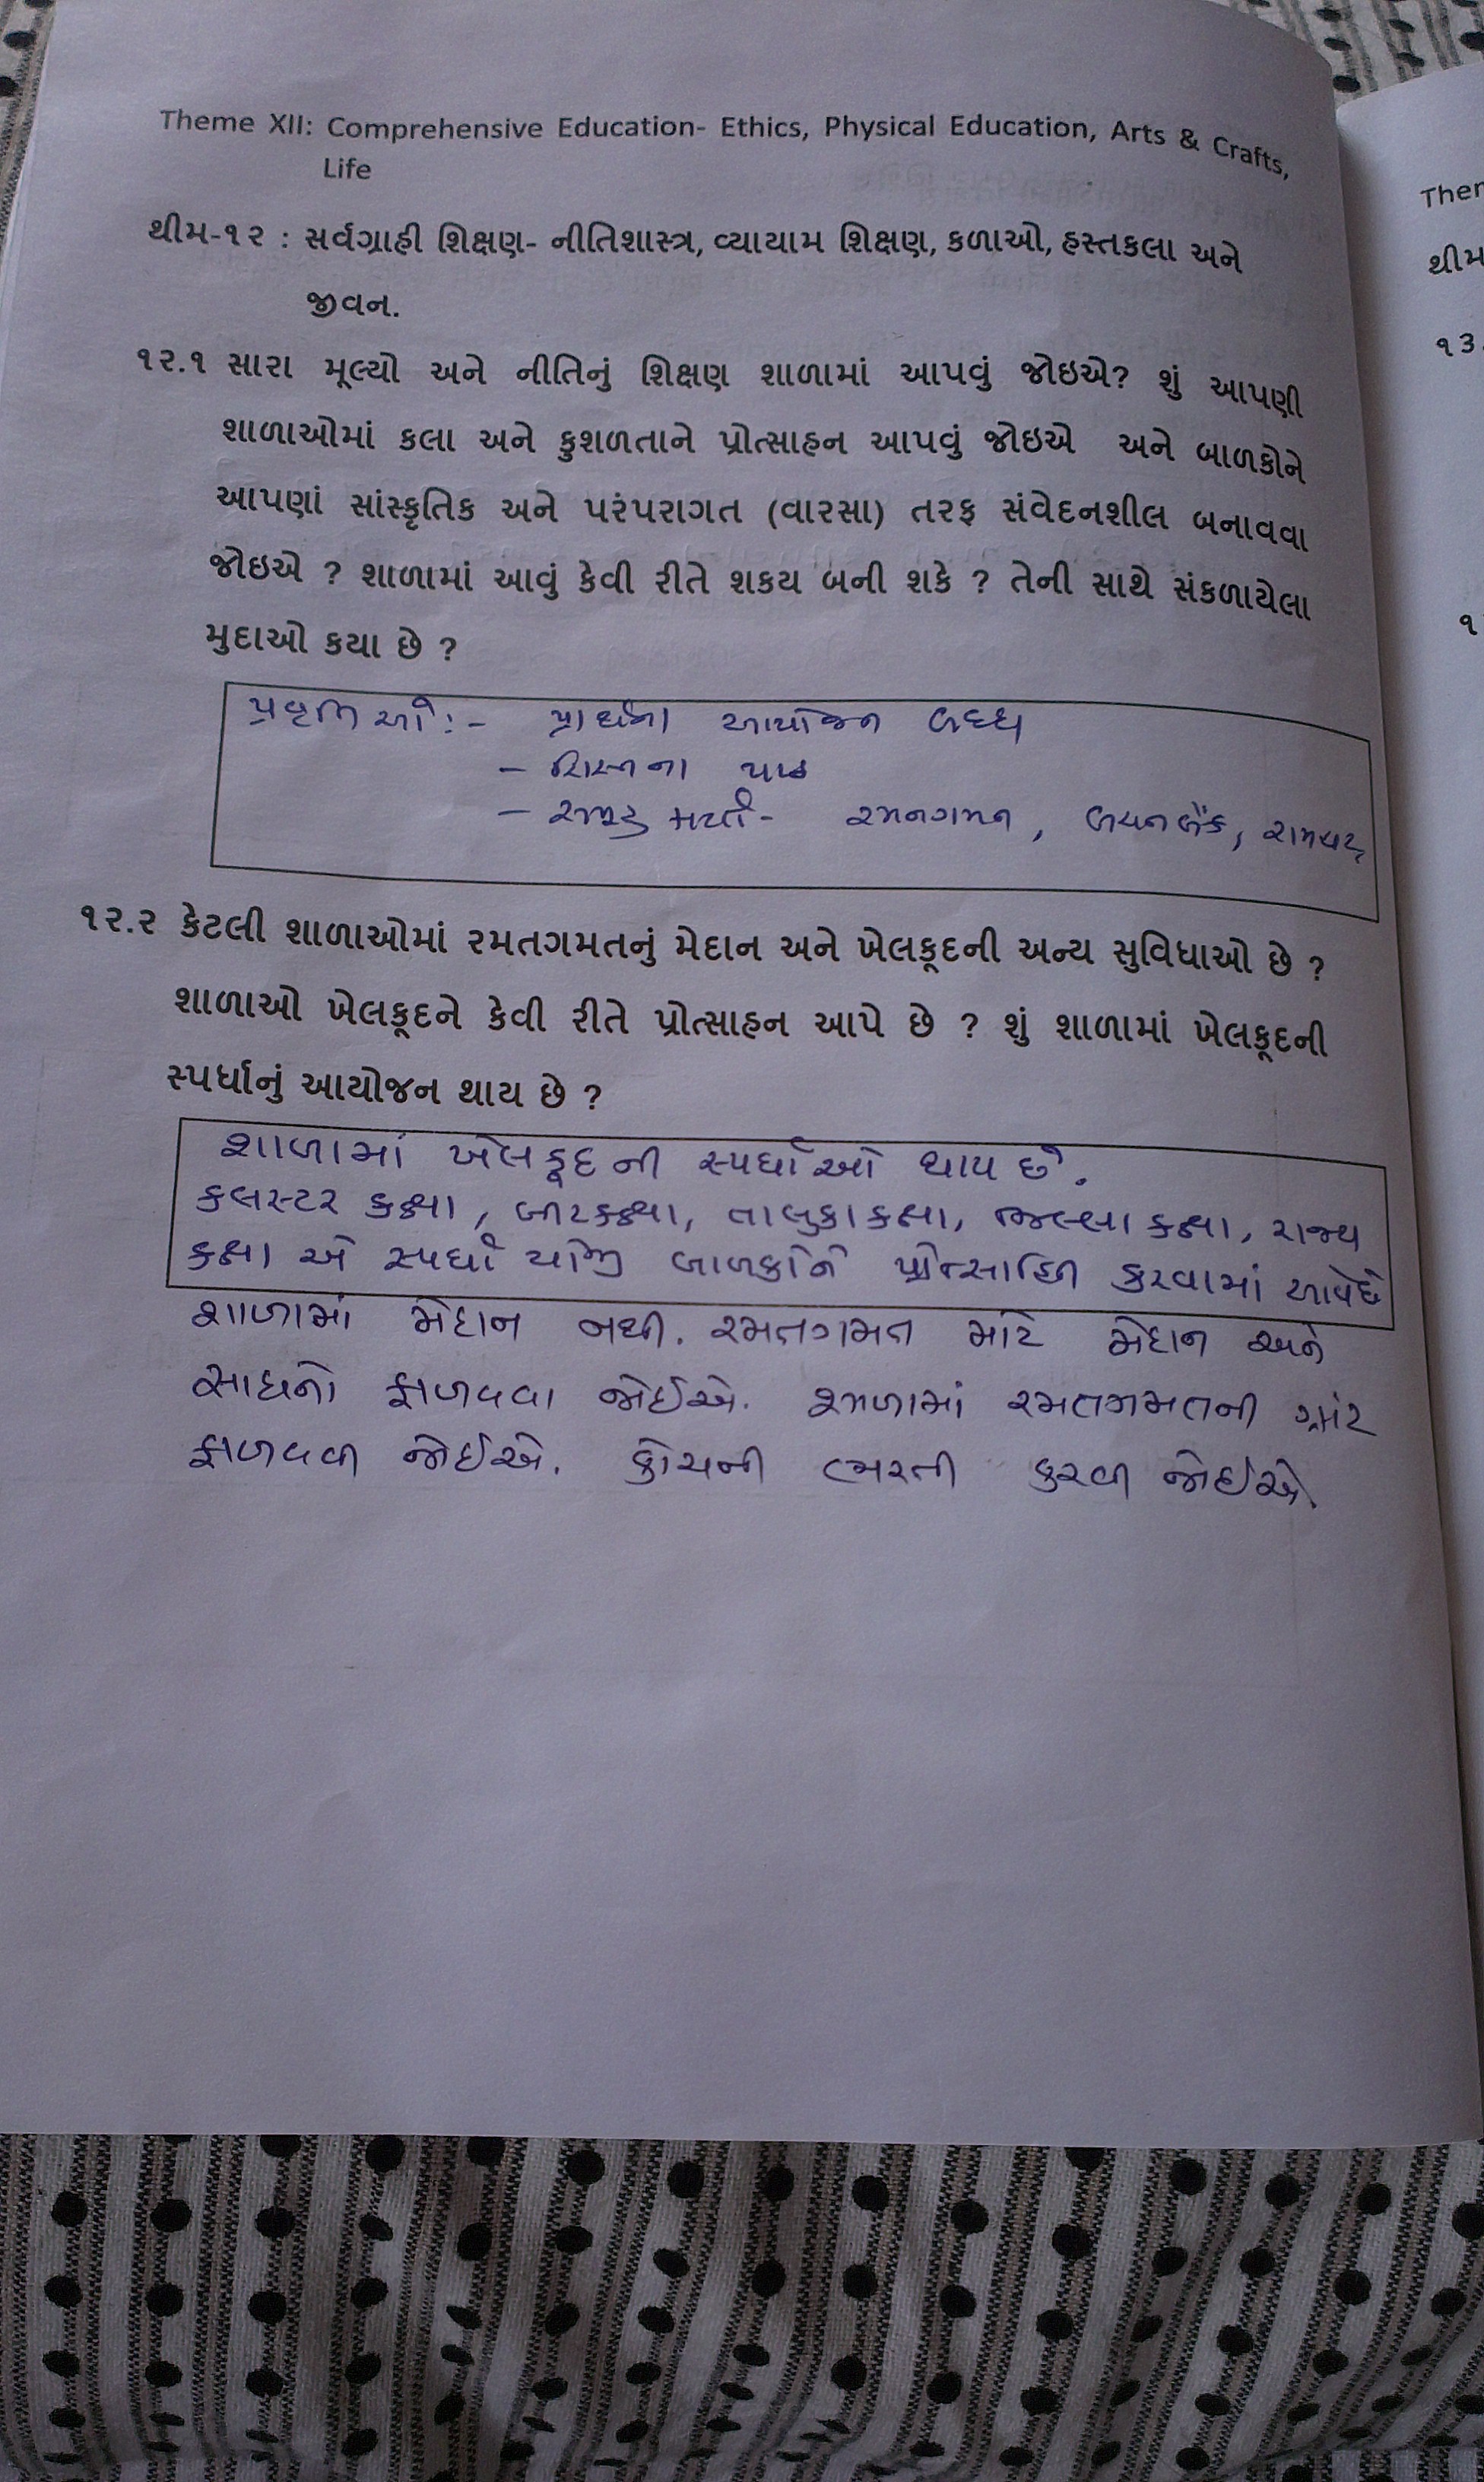 Theme XII: Comprehensive Education- Ethics, Physical Education, Arts & Crafts,
Life
થીમ-૧૨ : સર્વગ્રાહી શિક્ષણ- નીતિશાસ્ત્ર, વ્યાયામ શિક્ષણ, કળાઓ, હસ્તકલા અને
જીવન.
૧૨.૧ સારા મૂલ્યો અને નીતિનું શિક્ષણ શાળામાં આપવું જોઇએ? શું આપણી
શાળાઓમાં કલા અને કુશળતાને પ્રોત્સાહન આપવું જોઇએ અને બાળકોને
આપણાં સાંસ્કૃતિક અને પરંપરાગત (વારસા) તરફ સંવેદનશીલ બનાવવા
જોઇએ ? શાળામાં આવું કેવી રીતે શકય બની શકે ? તેની સાથે સંકળાયેલા
મુદાઓ કયા છે ?
પ્રવૃત્તિઓ :- પ્રાર્થના આયોજન બધ્ધ
- શિસ્તના પાઠ
- રમતગમત, બચતબેંક, રામહાટ
૧૨.૨ કેટલી શાળાઓમાં રમતગમતનું મેદાન અને ખેલકૂદની અન્ય સુવિધાઓ છે ?
શાળાઓ ખેલકૂદને કેવી રીતે પ્રોત્સાહન આપે છે ? શું શાળામાં ખેલકૂદની
સ્પર્ધાનું આયોજન થાય છે ?
શાળામાં ખેલકૂદની સ્પર્ધાઓ થાય છે.
કલસ્ટર કક્ષા, બીટકક્ષા, તાલુકા કક્ષા, જિલ્લા કક્ષા, રાજ્ય
કક્ષા એ સ્પર્ધા યોજી બાળકોને પ્રોત્સાહિત કરવામાં આવેછે
શાળામાં મેદાન નથી. રમતગમત માટે મેદાન અને
સાધનો ફાળવવા જોઈએ. શાળામાં રમતગમતની ગ્રાંટ
ફાળવવી જોઈએ. કોચની ભરતી કરવી જોઈએ.
Ther
થીમ
૧૩.
૧